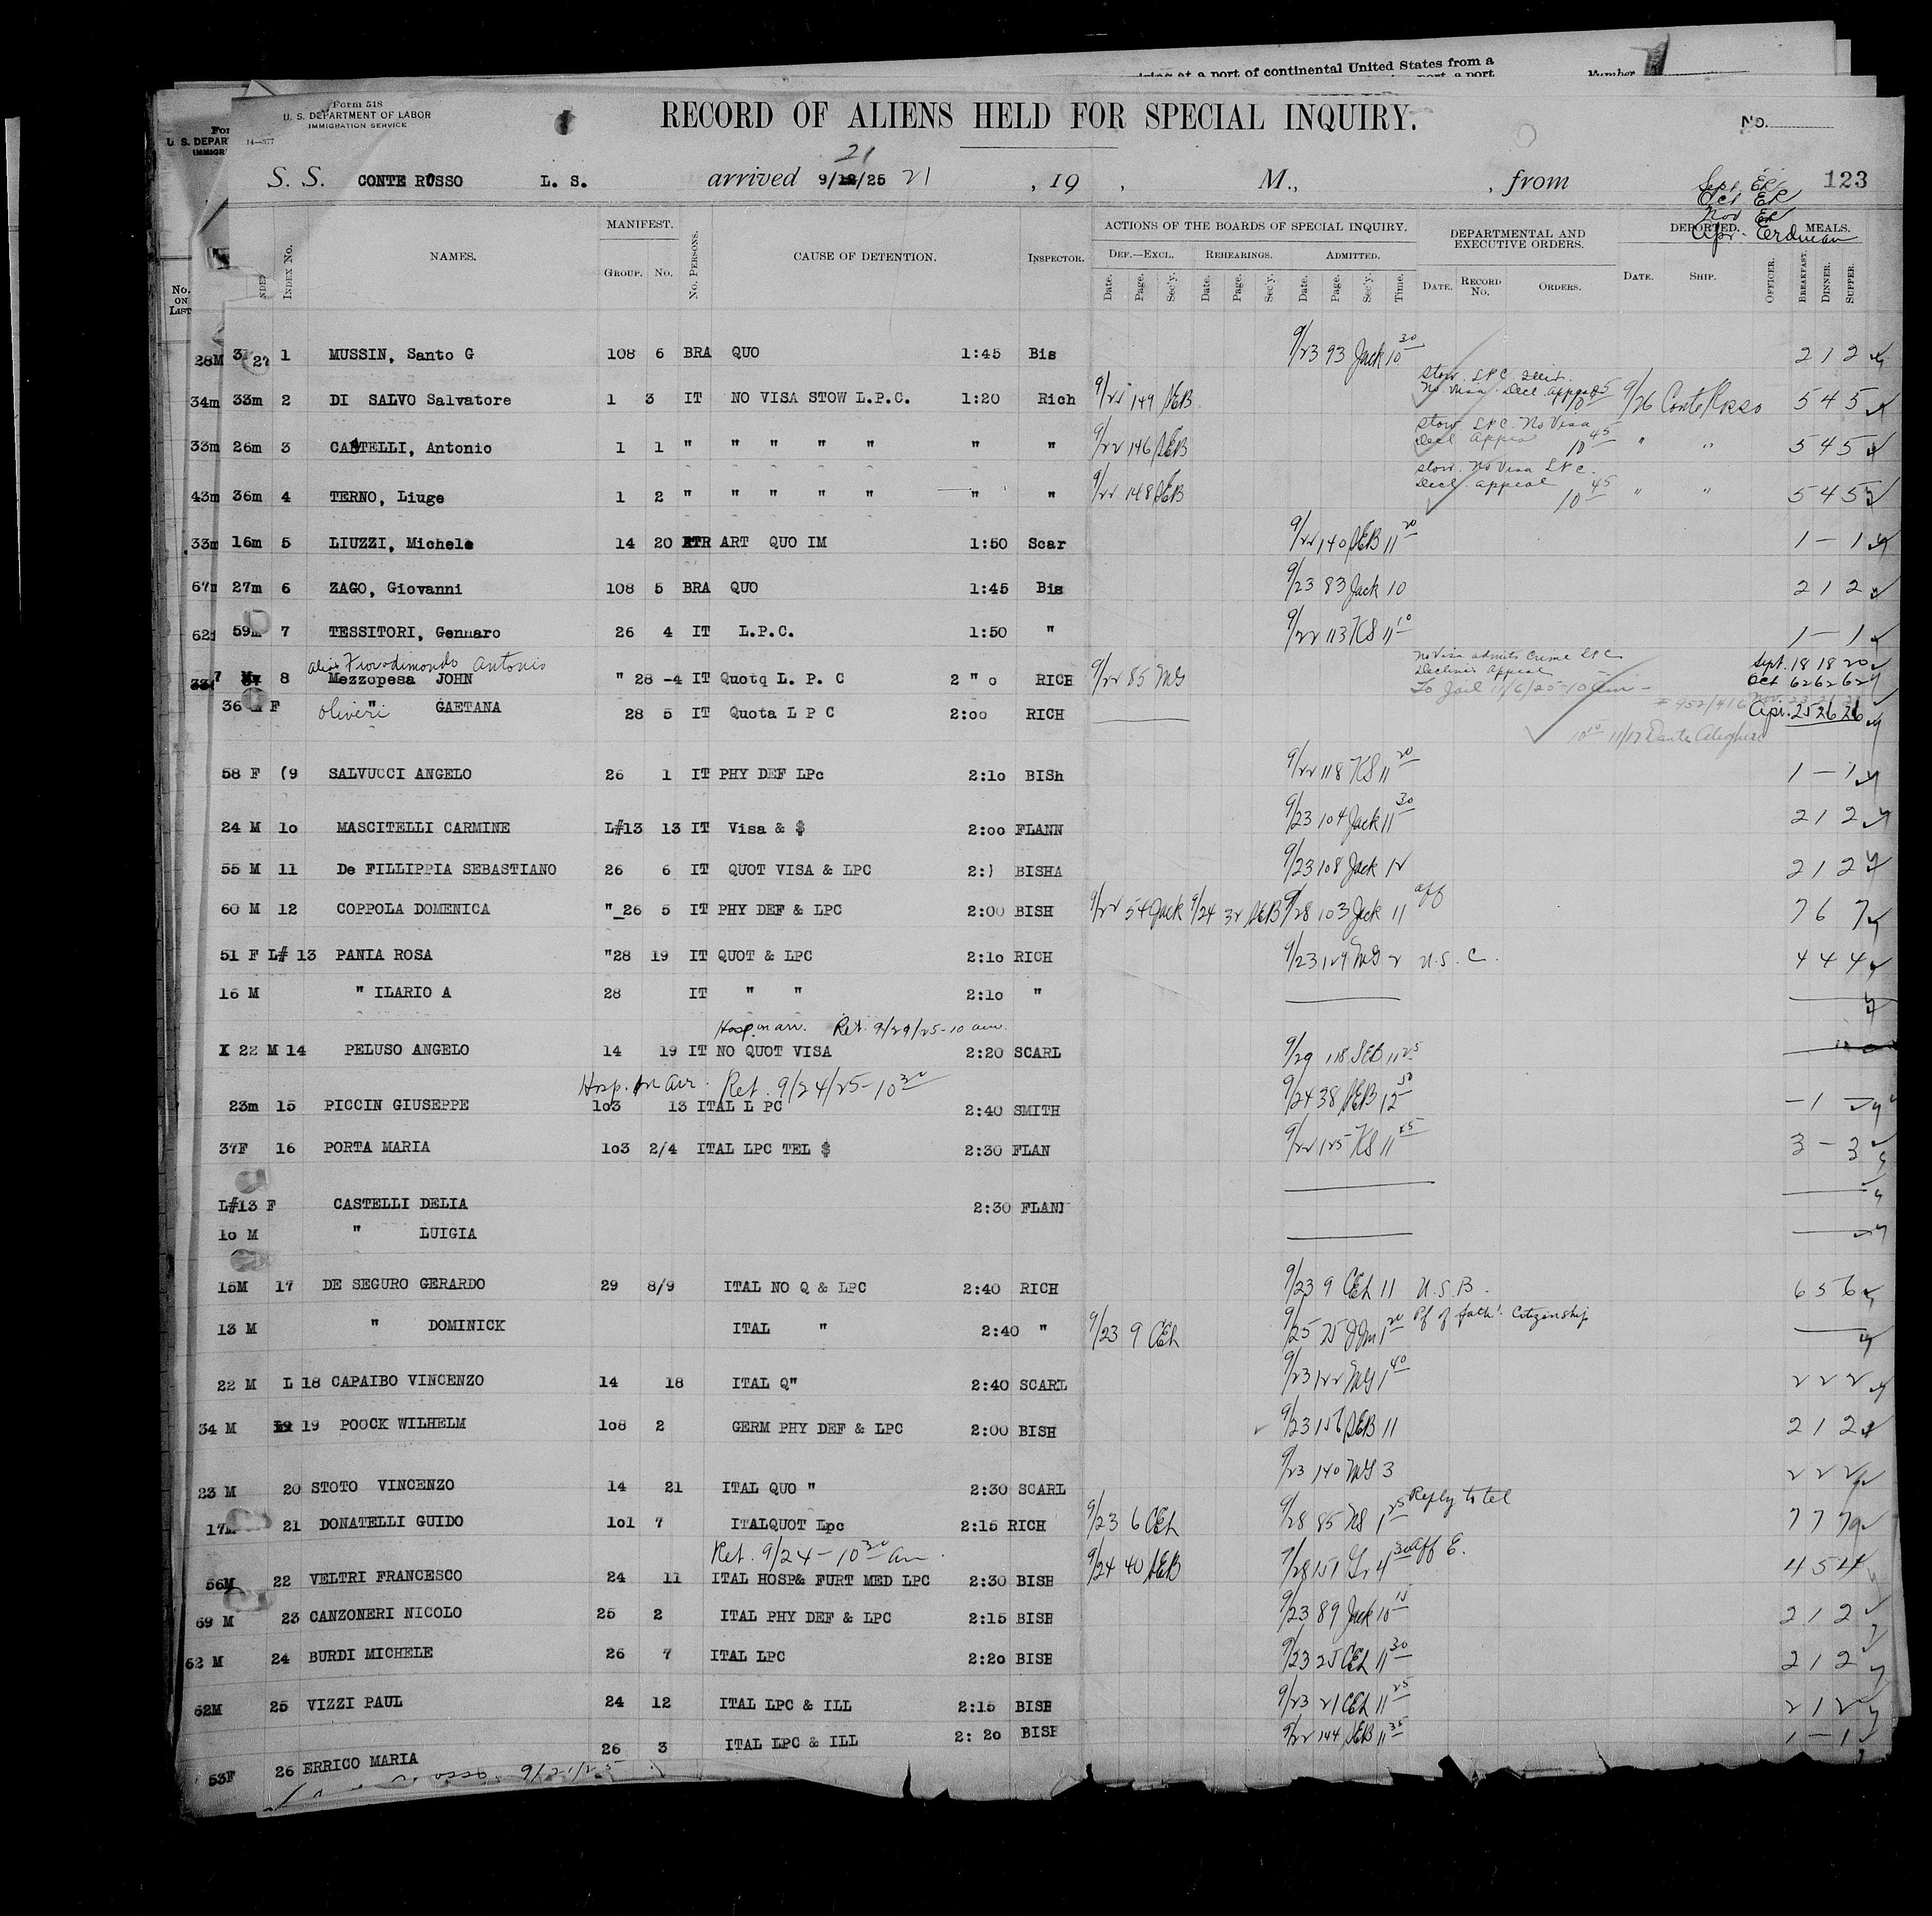 iving at a port of continental United States from a
Number
Form 518
U. S. DEPARTMENT OF LABOR
IMMIGRATION SERVICE
14—377
RECORD OF ALIENS HELD FOR SPECIAL INQUIRY.
No.
S. S. CONTE ROSSO L. S. arrived 9/18/25 21 , 19 , M., , from 123
21
Sept. ER
Oct ER
Nov ER
Apr. Erdman
No. ON LIST
INDEX No.
NAMES.
MANIFEST.
GROUP. No.
No. PERSONS.
CAUSE OF DETENTION.
INSPECTOR.
ACTIONS OF THE BOARDS OF SPECIAL INQUIRY.
DEF.—EXCL. REHEARINGS. ADMITTED.
Date. Page. Sec'y. Date. Page. Sec'y. Date. Page. Sec'y. Time.
DEPARTMENTAL AND EXECUTIVE ORDERS.
DATE. RECORD No. ORDERS.
DEPORTED.
DATE. SHIP. OFFICER.
MEALS.
BREAKFAST. DINNER. SUPPER.
28M 27 1 MUSSIN, Santo G 108 6 BRA QUO 1:45 Bis 9/23 93 Jack 10 30 2 1 2
Stow. LPC
No Visa. Decl. appeal
34m 33m 2 DI SALVO Salvatore 1 3 IT NO VISA STOW L.P.C. 1:20 Rich 9/22 149 SEB 9/26 Conte Rosso 5 4 5
Stow. LPC. No Visa
Decl appeal 10 45
33m 26m 3 CASTELLI, Antonio 1 1 " " " " " " " 9/22 146 SEB " " 5 4 5
Stow. No Visa LPC.
Decl. appeal 10 45
43m 36m 4 TERNO, Liuge 1 2 " " " " " " " 9/22 148 SEB " " 5 4 5
33m 16m 5 LIUZZI, Michele 14 20 ART QUO IM 1:50 Scar 9/22 140 SEB 11 20 1 – 1
67m 27m 6 ZAGO, Giovanni 108 5 BRA QUO 1:45 Bis 9/23 83 Jack 10 2 1 2
59m 7 TESSITORI, Gennaro 26 4 IT L.P.C. 1:50 " 9/22 113 KS 11 10 1 – 1
alias Fiorodimondo Antonio
8 Mezzopesa JOHN " 28 -4 IT Quotq L. P. C 2 " o RICH 9/22 85 MG
No Visa admits Crime LPC
Declines Appeal
To Jail 11/6/25-10 am -
Sept. 18 18 20
Oct 62 62 62
36 F Oliveri " GAETANA 28 5 IT Quota L P C 2:oo RICH
Apr. 25 26 26
11/17 Dante Alighieri
58 F (9 SALVUCCI ANGELO 26 1 IT PHY DEF LPc 2:1o BISh 9/22 118 KS 11 20 1 – 1
24 M 1o MASCITELLI CARMINE L#13 13 IT Visa & $ 2:oo FLANN 9/23 104 Jack 11 30 2 1 2
55 M 11 De FILLIPPIA SEBASTIANO 26 6 IT QUOT VISA & LPC 2: BISHA 9/23 108 Jack 12 2 1 2
60 M 12 COPPOLA DOMENICA "_26 5 IT PHY DEF & LPC 2:00 BISH 9/22 54 Jack 9/24 32 SEB 9/28 103 Jack 11 aff 7 6 7
51 F L# 13 PANIA ROSA "28 19 IT QUOT & LPC 2:1o RICH 9/23 129 MG 2 U.S.C. 4 4 4
16 M " ILARIO A 28 IT " " 2:1o "
Hosp. on arr. Ret. 9/29/25-10 am.
X 22 M 14 PELUSO ANGELO 14 19 IT NO QUOT VISA 2:20 SCARL 9/29 118 SEB 11 25
Hosp. on arr. Ret. 9/24/25-10 30
23m 15 PICCIN GIUSEPPE 1o3 13 ITAL L PC 2:40 SMITH 9/24 38 SEB 12 50 – 1 –
37F 16 PORTA MARIA 1o3 2/4 ITAL LPC TEL $ 2:30 FLAN 9/22 125 KS 11 3 – 3
L#13 F CASTELLI DELIA 2:30 FLAN
1o M " LUIGIA
15M 17 DE SEGURO GERARDO 29 8/9 ITAL NO Q & LPC 2:40 RICH 9/23 9 CEL 11 U.S.B. 6 5 6
13 M " DOMINICK ITAL " 2:40 " 9/23 9 CEL 9/25 75 1 20 Pf of fath's Citizenship
22 M L 18 CAPAIBO VINCENZO 14 18 ITAL Q" 2:40 SCARL 9/23 122 MG 1 40 2 2 2
34 M 19 POOCK WILHELM 1o8 2 GERM PHY DEF & LPC 2:00 BISH 9/23 156 SEB 11 2 1 2
23 M 20 STOTO VINCENZO 14 21 ITAL QUO " 2:30 SCARL 9/23 140 MG 3 2 2 2
17M 21 DONATELLI GUIDO 1o1 7 ITALQUOT Lpc 2:15 RICH 9/23 6 CEL 9/28 85 KS 1 25 Reply to tel 7 7 7
Ret. 9/24-10 30 am.
56M 22 VELTRI FRANCESCO 24 11 ITAL HOSP& FURT MED LPC 2:30 BISH 9/24 40 SEB 9/28 151 4 30 aff E. 4 5 4
69 M 23 CANZONERI NICOLO 25 2 ITAL PHY DEF & LPC 2:15 BISH 9/23 89 Jack 10 15 2 1 2
62 M 24 BURDI MICHELE 26 7 ITAL LPC 2:2o BISH 9/23 25 CEL 11 30 2 1 2
52M 25 VIZZI PAUL 24 12 ITAL LPC & ILL 2:15 BISH 9/23 21 CEL 11 25 2 1 2
53F 26 ERRICO MARIA 26 3 ITAL LPC & ILL 2: 2o BISH 9/22 144 SEB 11 35 1 – 1
9/21/25